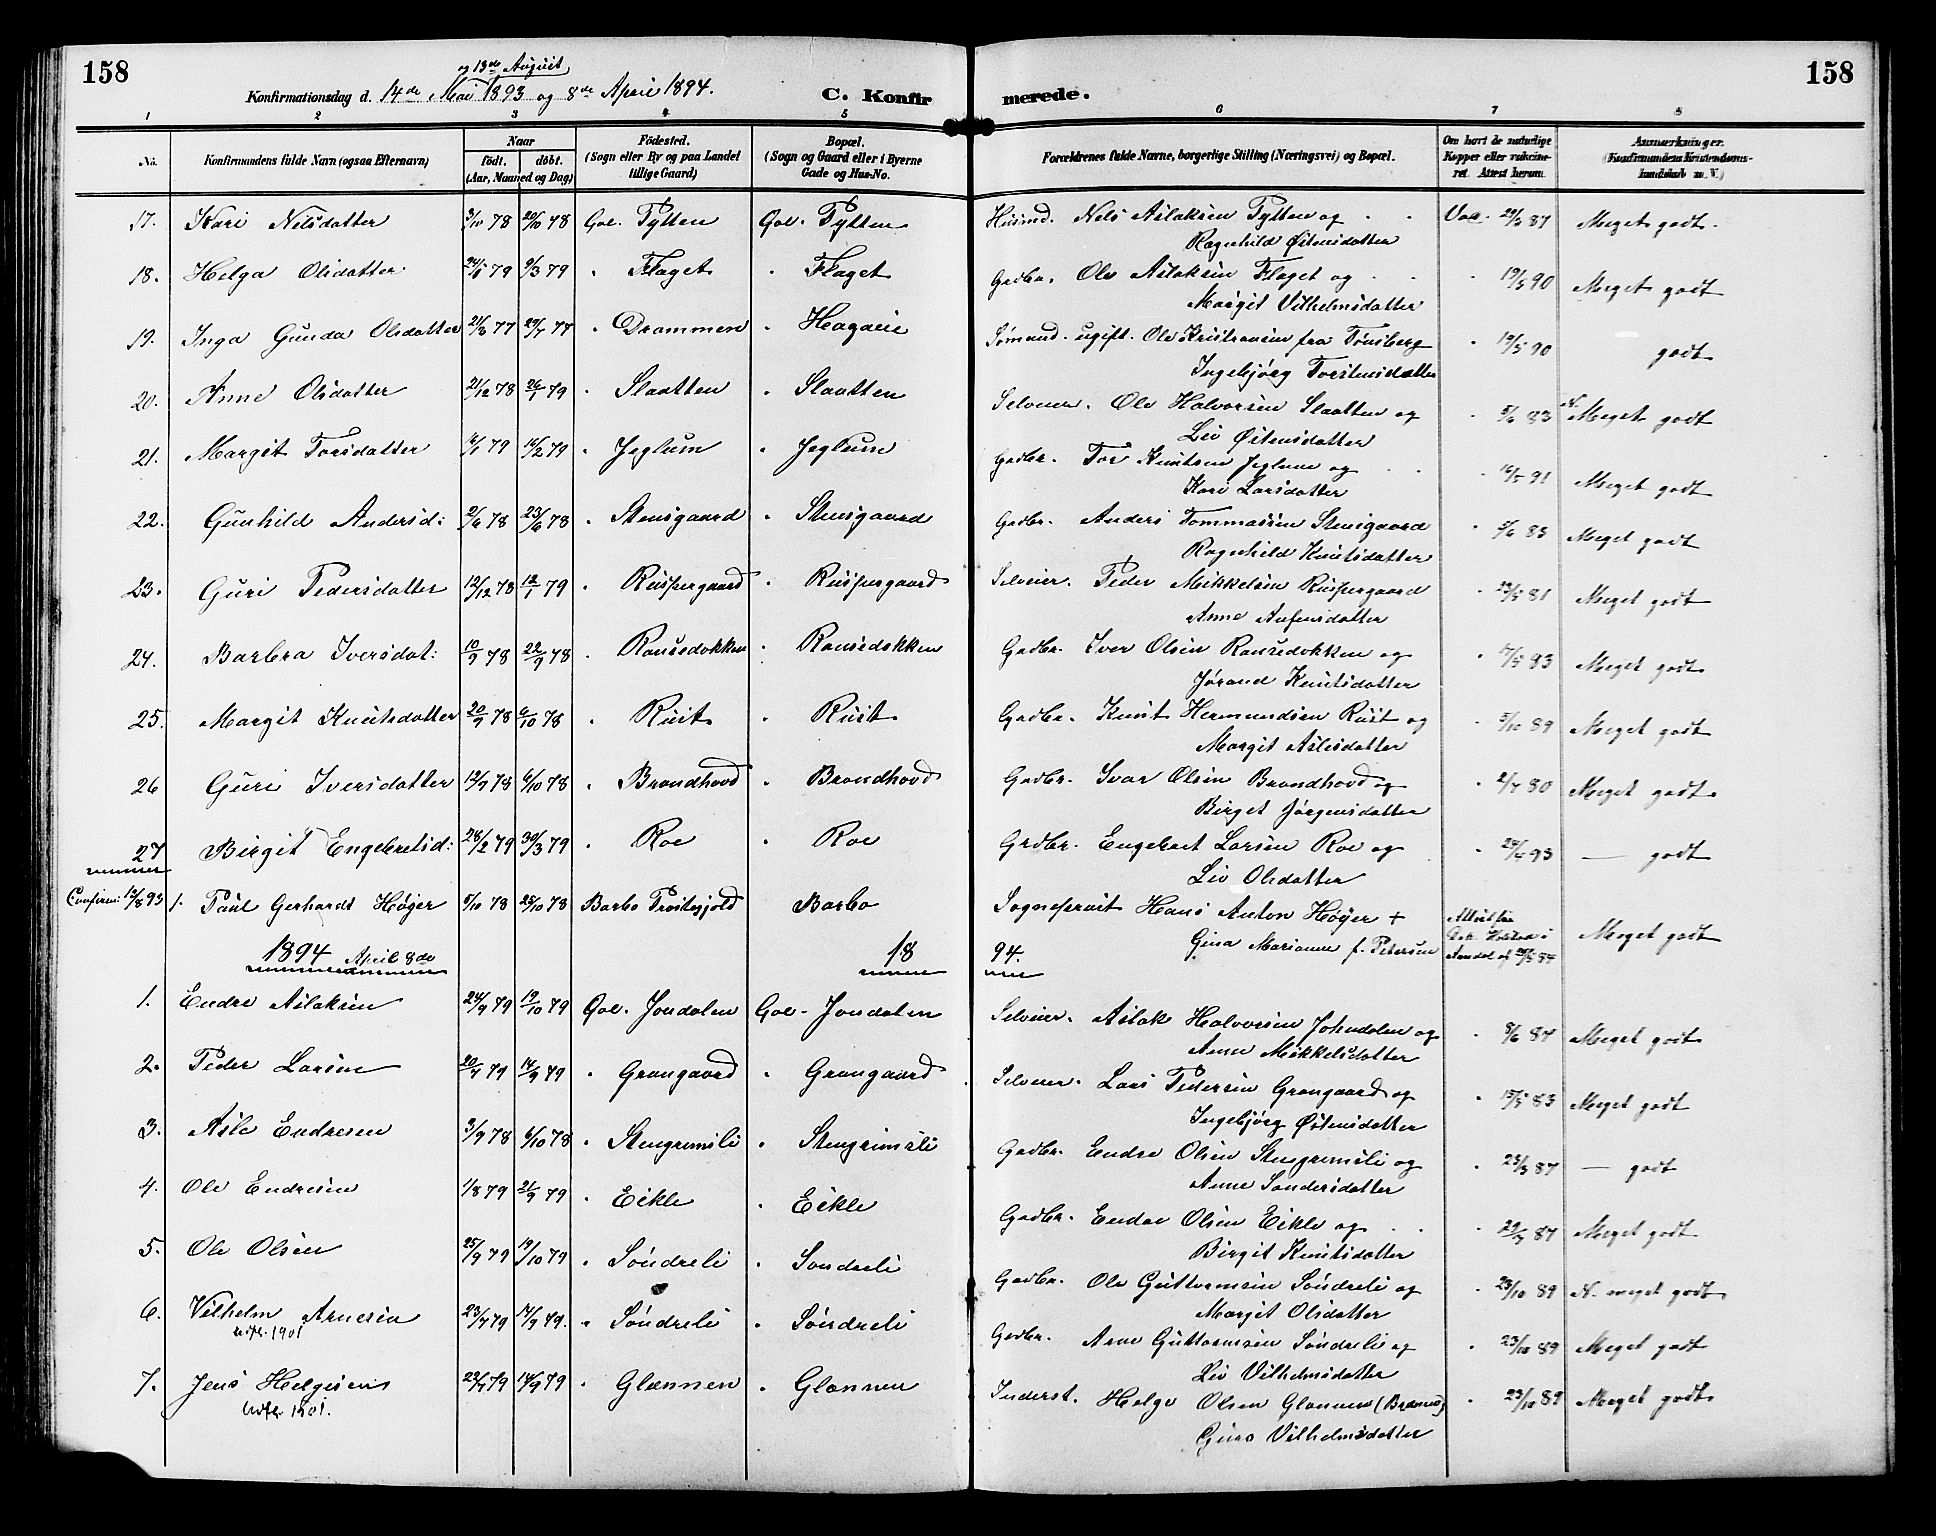 158
og 13de August
Konfirmationsdag d. 14de Mai 1893 og 8de April 1894.
C. Konfirmerede.
158
1 2 3 4 5 6 7 8
No. Konfirmandens fulde Navn (ogsaa Efternavn) Naar født. døbt. (Aar, Maaned og Dag) Fødested. (Sogn eller By og paa Landet tillige Gaard) Bopæl. (Sogn og Gaard eller i Byerne Gade og Hus-No. Forældrenes fulde Navne, borgerlige Stilling (Næringsvei) og Bopæl. Om havt de naturlige Kopper eller vakcineret. Attest herom. Anmærkninger. (Konfirmandens Kristendomskundskab m. V.)
17. Kari Nilsdatter 3/10 78 20/10 78 Gol. Tytten Gol. Tytten Husmd. Nils Aslaksen Tytten og Vac. 29/3 87 Meget godt.
Ragnhild Østensdatter
18. Helga Olsdatter 24/1 79 9/3 79 " Flaget " Flaget Gadbr. Ole Aslaksen Flaget og " 19/5 90 Meget godt
Margit Vilhelmsdatter
19. Inga Gunda Olsdatter 21/3 77 29/7 77 " Drammen " Hagaeie Sømand. ugift. Ole Kristiansen fra Tønsberg " 19/5 90 godt
Ingebjørg Torstensdatter
20. Anne Olsdatter 21/12 78 26/1 79 " Slaatten " Slaatten Selveier. Ole Halvorsen Slaatten og " 5/6 83 N. Meget godt
Liv Østensdatter
21. Margit Torsdatter 4/1 79 16/2 79 " Jeglum " Jeglum Gadbr. Tor Knutsen Jeglum og " 16/5 91 Meget godt
Kari Larsdatter
22. Gunhild Andersd: 2/6 78 23/6 78 " Stensgaard " Stensgaard Gadbr. Anders Tommassen Stensgaard " 5/6 83 Meget godt
Ragnhild Knutsdatter
23. Guri Pedersdatter 12/12 78 12/1 79 " Ruspergaard " Ruspergaard Selveier. Peder Mikkelsen Ruspergaard " 23/5 81 Meget godt
Anne Aufensdatter
24. Barbra Iversdat: 10/9 78 22/9 78 " Ransedokken " Ransedokken Gadbr. Iver Olsen Ransedokken og " 17/5 93 Meget godt
Jørand Knutsdatter
25. Margit Knutsdatter 20/9 78 6/10 78 " Rust " Rust Gadbr. Knut Hermundsen Rust og " 5/10 89 Meget godt
Margit Aslesdatter
26 Guri Iversdatter 12/9 78 6/10 78 " Brandhovd " Brandhovd Gadbr. Ivar Olsen Brandhovd og " 2/7 80 Meget godt.
Birget Jørgensdatter
27 Birgit Engebretsd: 28/2 79 30/3 79 " Roe " Roe Grdbr. Engebret Larsen Roe og " 24/4 93 — godt
Liv Olsdatter
Confirm: 13/8 93 1. Paul Gerhardt Høyer 5/10 78 25/10 78 Barbo Barbo Sogneprest Hans Anton Høyer + Attest fra Meget godt
Gina Marianne f. Petersen
1894 April 8de 18 94.
1. Endre Aslaksen 24/9 79 19/10 79 Gol. Jondalen Gol. Jondalen Selveier. Aslak Halvorsen Johndalen og " 8/6 87 Meget godt
Anne Mikkelsdatter
2. Peder Larsen 20/7 79 14/9 79 " Grangaard " Grangaard Selveier. Lars Pedersen Grangaard og " 15/5 83 Meget godt
Ingebjørg Østensdatter
3. Asle Endresen 3/9 78 6/10 78 " Stengrimsli " Stengrimsli Gadbr. Endre Olsen Stengrimsli og " 23/3 87 — godt
Anne Sandersdatter
4. Ole Endresen 1/8 79 21/9 79 " Eikle " Eikle Gadbr. Endre Olsen Eikle og " 22/3 87 Meget godt
Birgit Knutsdatter
5. Ole Olsen 25/9 79 19/10 79 " Søndreli " Søndreli Gadbr. Ole Guttormsen Søndreli og " 23/10 89 N. meget godt
Margit Olsdatter
6. Vilhelm Arnesen 23/7 79 14/9 79. " Søndreli " Søndreli Gadbr. Arne Guttormsen Søndreli og " 23/10 89 Meget godt
utfl. 1901 Liv Vilhelmsdatter
7. Jens Helgesen 22/7 79 14/9 79 " Glennen " Glennen Inderst. Helge Olsen Glennen " 23/10 89 Meget godt
Utfl. 1901. Guro Vilhelmsdatter